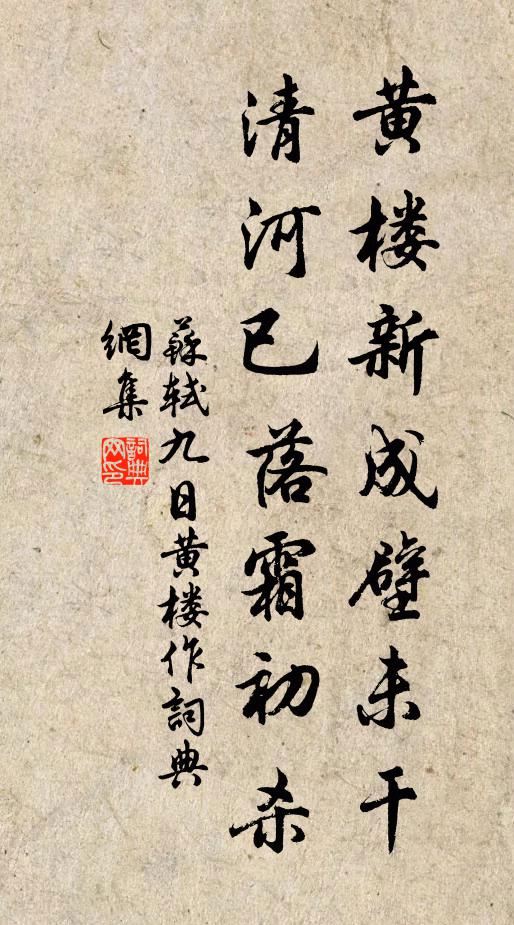 黄楼新成壁未干
清河已落霜初杀
蘇軾九日黄楼作詞典
網集
詞典
网印